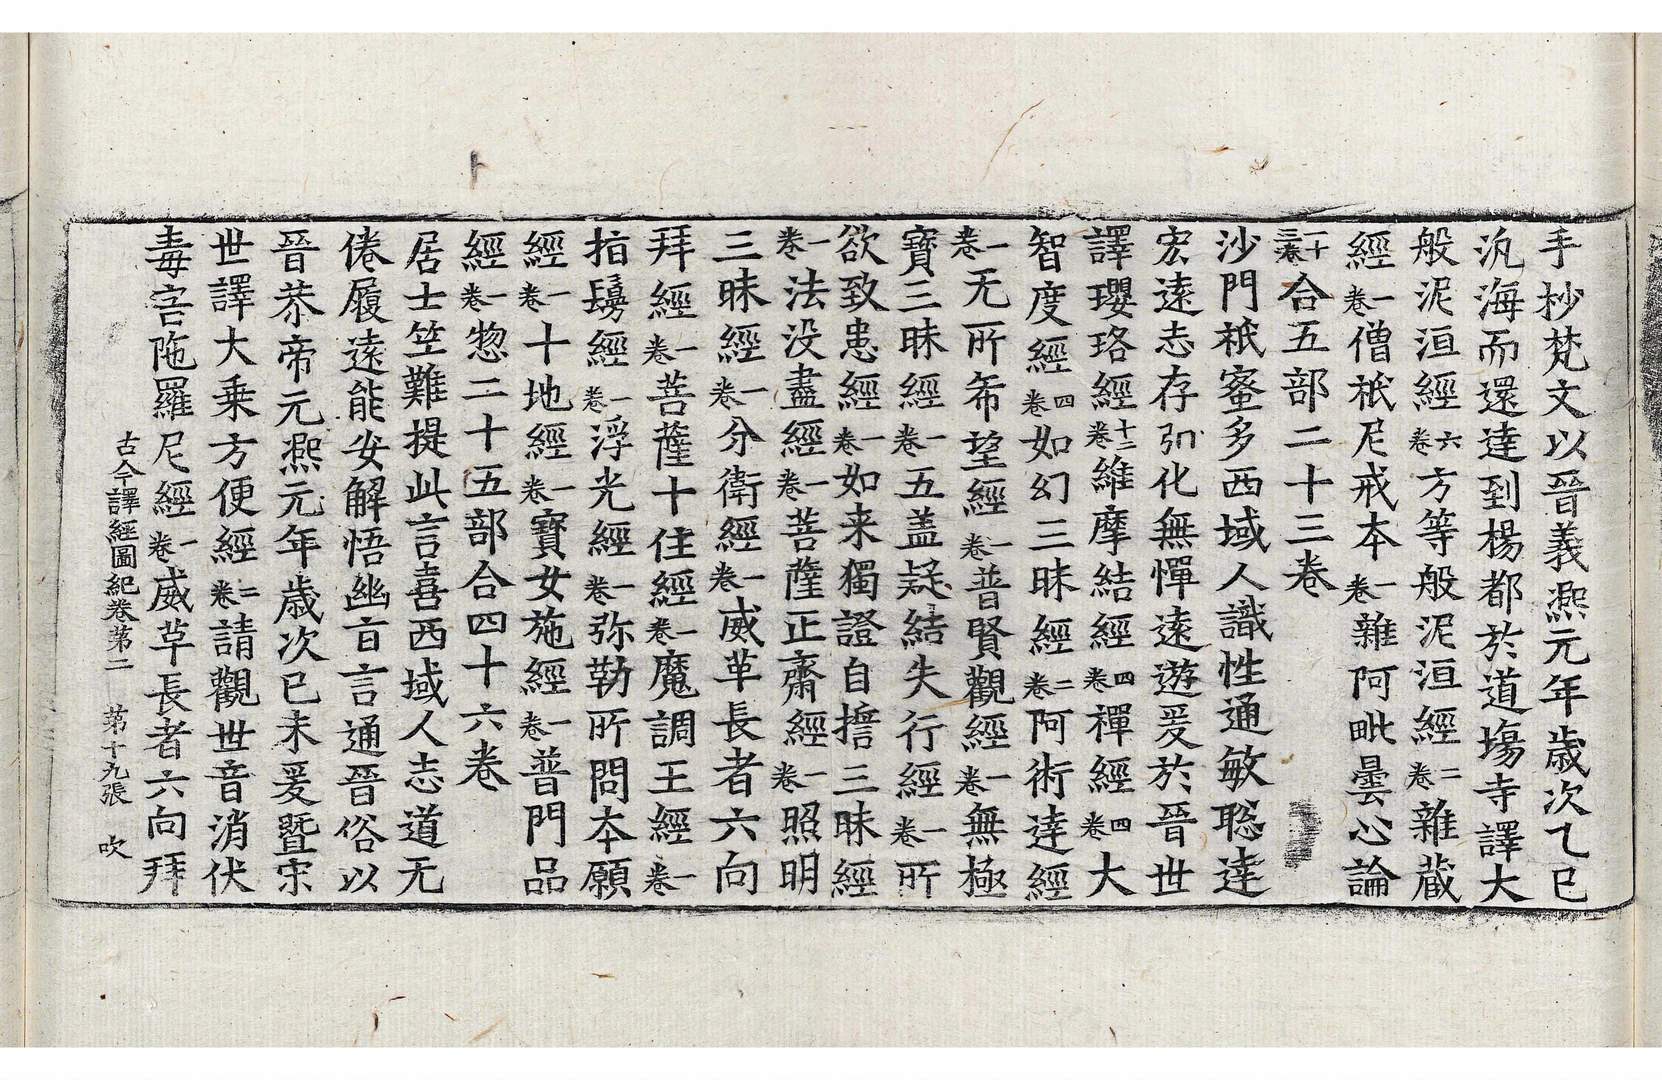 手抄梵文以晉義熙元年歲次乙巳
汎海而還達到楊都於道塲寺譯大
般泥洹經六卷方等般泥洹經二卷雜藏
經一卷僧祇尼戒本一卷雜阿毗曇心論
一十三卷合五部二十三卷
沙門祇蜜多西域人識性通敏聡達
宏遠志存弘化無憚遠遊爰於晉世
譯瓔珞經十二卷維摩結經四卷禪經四卷大
智度經四卷如幻三昧經二卷阿術達經
一卷无所希望經一卷普賢觀經一卷無極
寶三昧經一卷五盖疑結失行經一卷所
欲致患經一卷如来獨證自誓三昧經
一卷法没盡經一卷菩薩正齋經一卷照明
三昧經一卷分衛經一卷威革長者六向
拜經一卷菩薩十住經一卷魔調王經一卷
指鬘經一卷浮光經一卷弥勒所問本願
經一卷十地經一卷寶女施經一卷普門品
經一卷惣二十五部合四十六卷
居士竺難提此言喜西域人志道无
倦履遠能安解悟幽旨言通晉俗以
晉恭帝元熙元年歲次巳未爰暨宋
世譯大乗方便經二卷請觀世音消伏
毒害陁羅尼經一卷威革長者六向拜
古今譯經圖紀卷第二 第十九張 吹